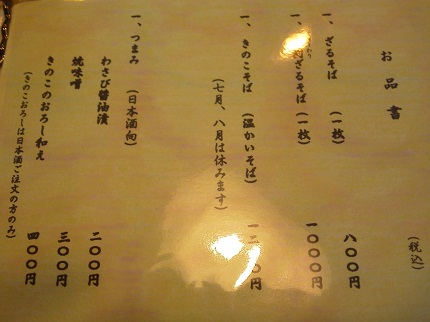 お品書 (税込)
一、ざるそば (一枚) 八〇〇円
一、ざるそば (一枚) 一〇〇〇円
一、きのこそば (温かいそば) 一二 〇円
(七月、八月は休みます)
一、つまみ (日本酒向)
わさび醤油漬 二〇〇円
焼味噌 三〇〇円
きのこのおろし和え 四〇〇円
(きのこおろしは日本酒ご注文の方のみ)